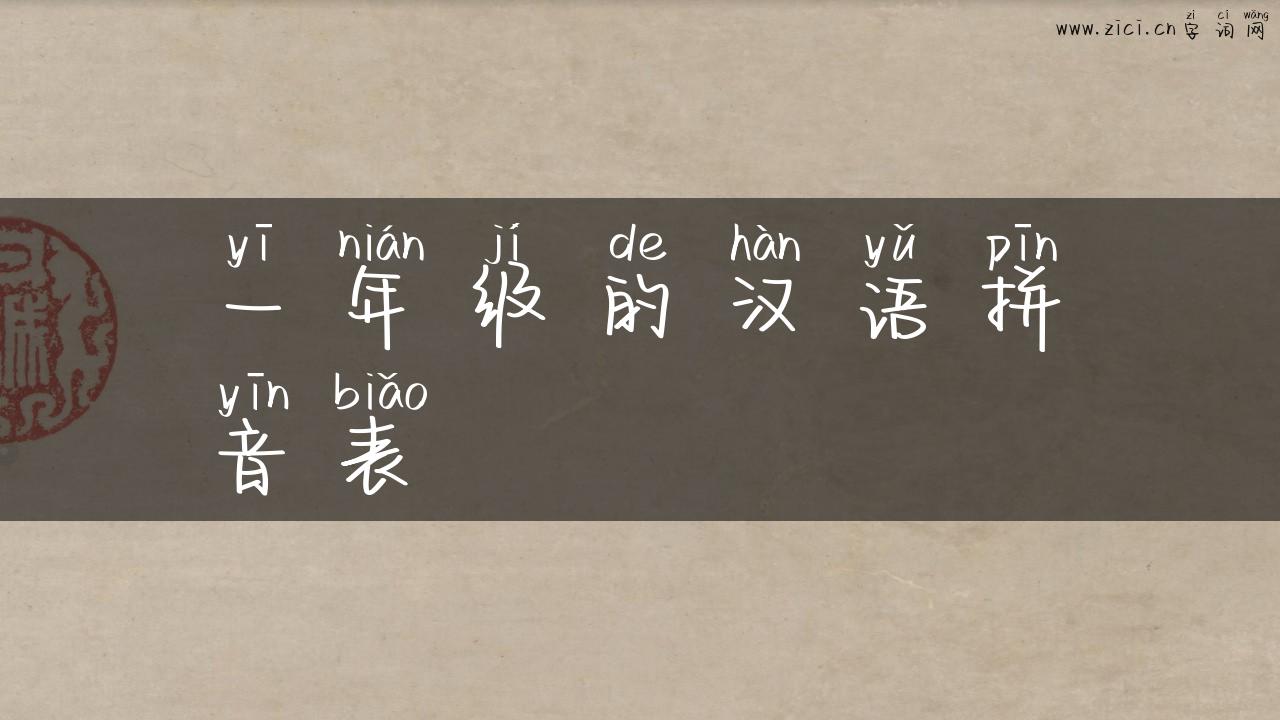 zì cí wǎng
www.zici.cn 字 词 网
yī nián jí de hàn yǔ pīn
一 年 级 的 汉 语 拼
yīn biǎo
音 表